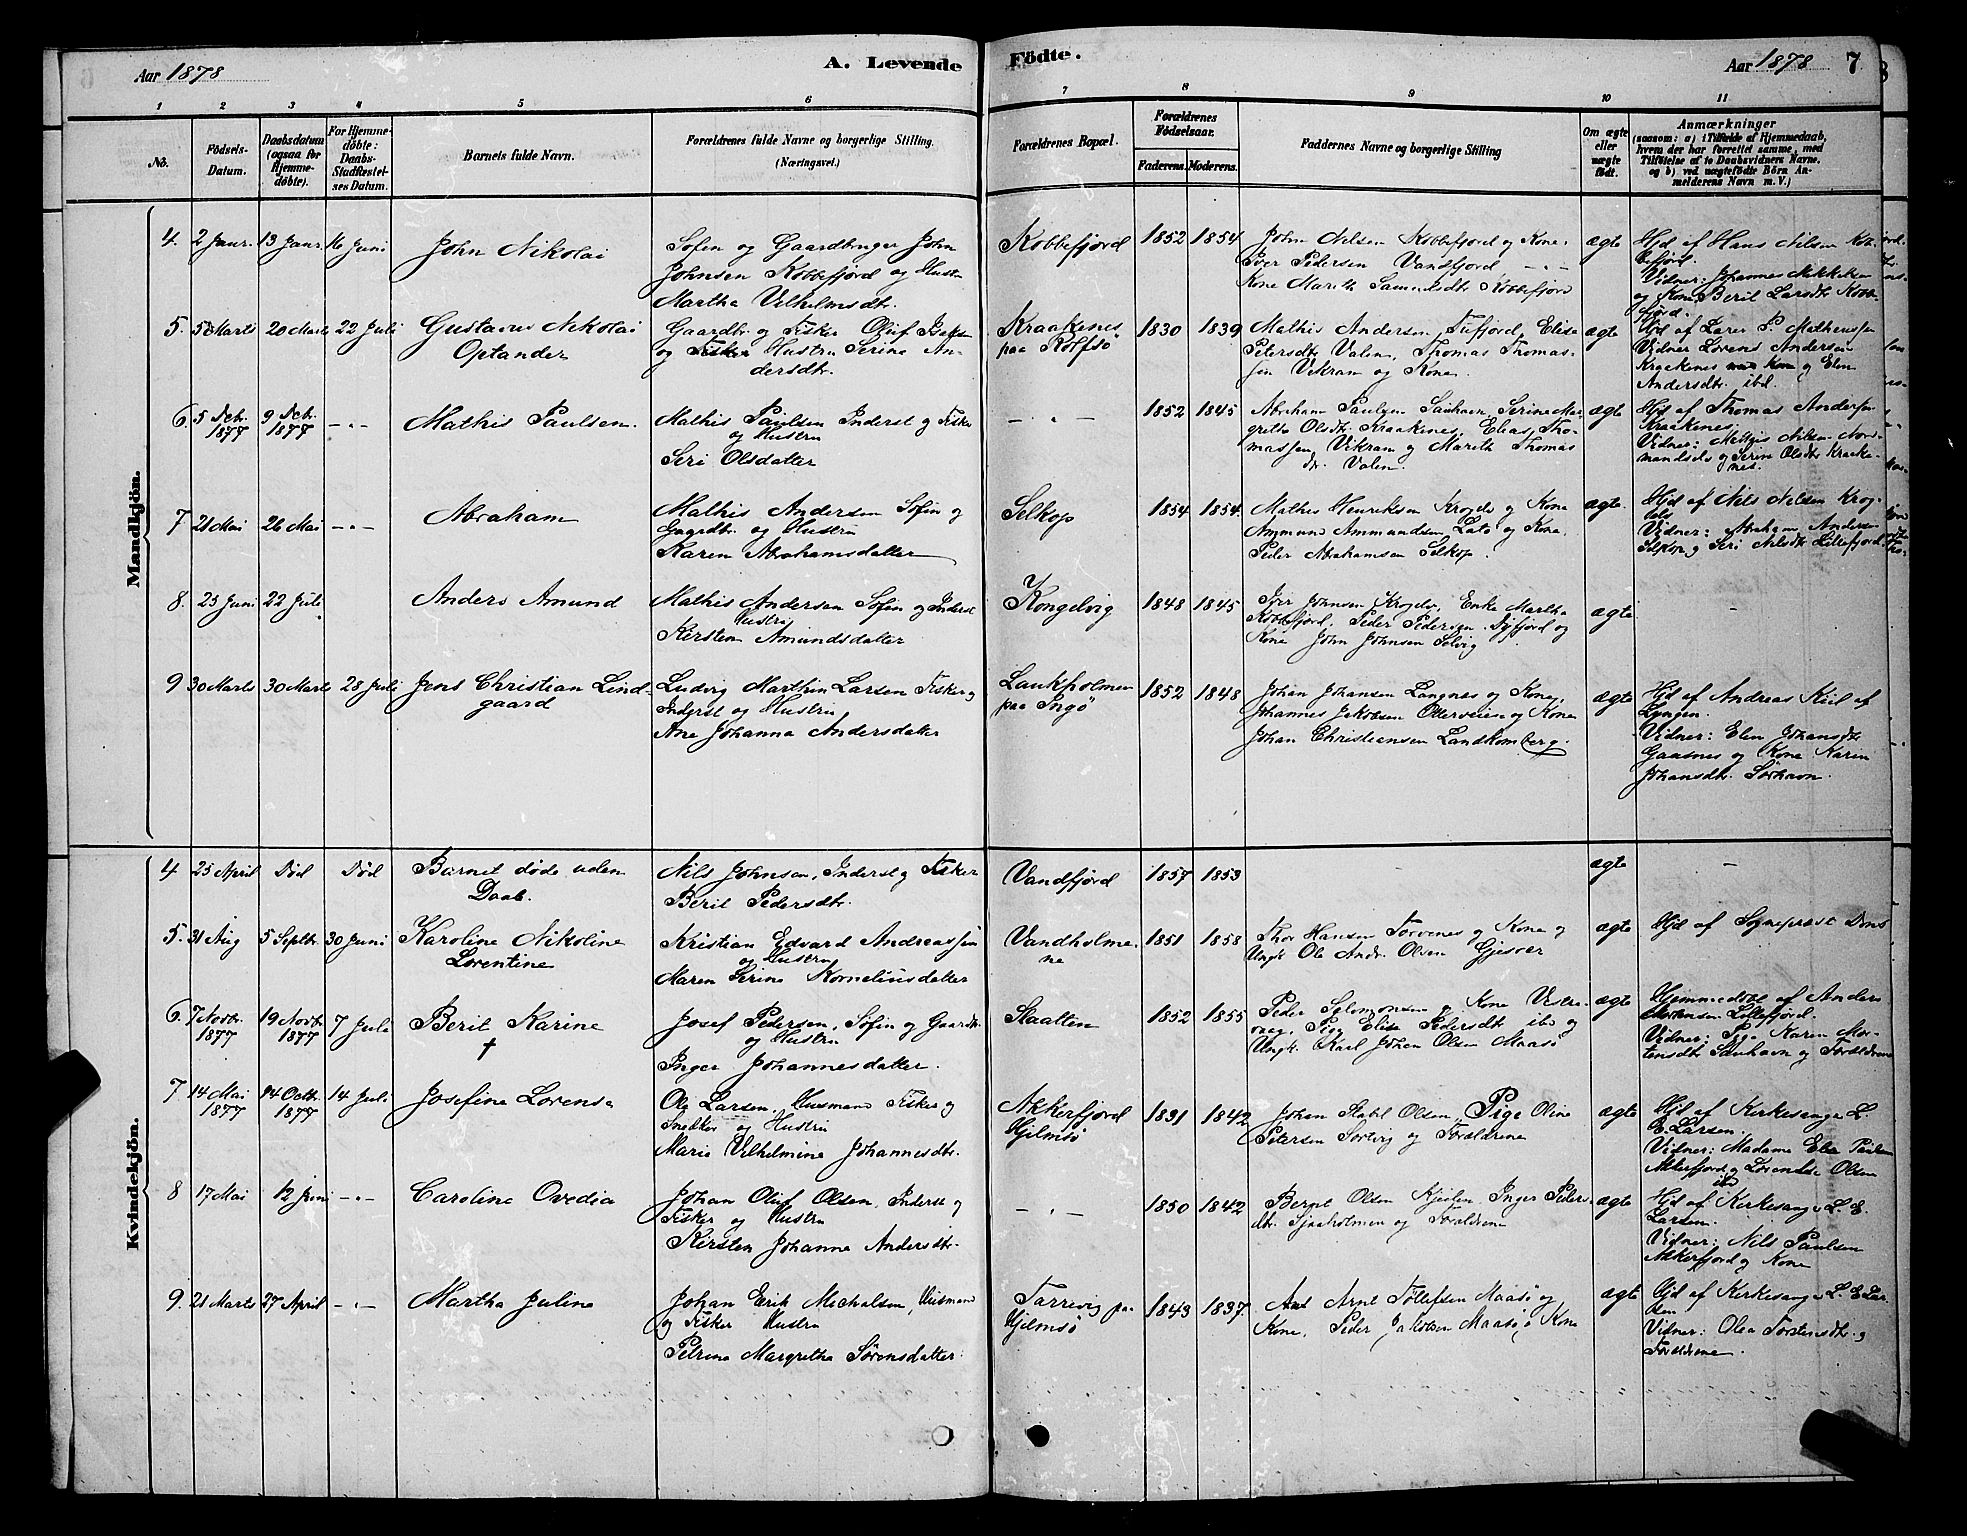 Aar 1878
A. Levende
Födte.
Aar 1878 7
1 2 3 4 5 6 7 8 9 10 11
No.
Födsels-Datum.
Daabsdatum (ogsaa for Hjemme-döbte).
For Hjemme-döbte: Daabs-Stadfæstel-ses Datum.
Barnets fulde Navn.
Forældrenes fulde Navne og borgerlige Stilling.
(Næringsvei.)
Forældrenes Bopæl.
Forældrenes Födselsaar.
Faderens. Moderens.
Faddernes Navne og borgerlige Stilling
Om ægte eller uægte födt.
Anmærkninger
(saasom: a) i Tilfælde af Hjemmedaab,
hvem der har forrettet samme, med
Tilföielse af to Daabsvidners Navne.
og b) ved uægtefödte Börn An-
melderens Navn m. V.)
Mandkjön.
4. 2 Janr. 13 Janr. 16 Juni John Nikolai
Sofin og Gaardbruger John
Johnsen Kobbefjord og Hustru
Martha Vilhelmsdtr.
Kobbefjord 1852 1854
John Nilsen Kobbefjord og Kone
Iver Pedersen Vandfjord - " -
Kone Marith Samuelsdtr Kobbefjord
ægte
Hjd af Hans Nilsen Kob-
befjord.
Vidner: Johannes Mikkelsen
og Kone Beril Larsdtr Kobbe-
fjord.
5. 5 Marts 20 Marts 22 Juli Gustavus Nikolai
Optander
Gaardbr og Fisker Oluf Isaksen
og Fisker Hustru Serine An-
dersdtr.
Kraakenes
paa Rolfsö
1830 1839
Mathis Andersen Tufjord, Elisa
Petersdtr Valen, Thomas Thomas-
sen Vikram og Kone.
ægte
Hjd af Lars P. Matheussen
Vidner Lorens Andersen
Kraakenes og Elen
Andersdtr. ibd.
6. 5 Dcbr. 1877 9 Dcbr. 1877 - " - Mathis Paulsen.
Mathis Paulsen Inderst og Fisker
og Hustru
Seri Olsdatter
- " - 1852 1845
Abraham Paulsen Sarhavn, Serine Mar-
grethe Olsdtr Kraakenes, Elias Tho-
massen Vikram og Marith Thomas
dtr. Valen.
ægte
Hjd af Thomas Andersen
Kraakenes.
Vidner: Mathis Nilsen Nord-
mandsets og Serine Olsdtr Kraake-
nes.
7 21 Mai 26 Mai - " - Abraham
Mathis Andersen Sofin og
Gaardbr. og Hustru
Karen Abrahamsdatter
Selkop 1854 1854.
Mathis Henriksen Krogelv og Kone
Ammund Ammundsen Lato og Kone.
Peder Abrahamsen Selkop.
ægte.
Hjd af Nils Nilsen Krog-
elv
Vidner: Abraham Andersen
Selkop og Seri Nilsdtr Lillefjord
8. 23 Juni 22 Juli Anders Amund
Mathis Andersen Sofin og Inderst
Hustru
Kirsten Amundsdatter
Kongelvig 1848 1845
Iver Johnsen Krogelv, Enke Martha
Kobbefjord, Peder Pedersen Dyfjord og
Kone John Johnsen Selvig
ægte -
9 30 Marts 30 Marts 28 Juli Jens Christian Lind-
gaard
Ludvig Marthin Larsen Fisker og
Inderst og Hustru
Ane Johanna Andersdatter
Laukholmen
paa Ingö
1852 1848
Johan Johansen Langnæs og Kone
Johannes Jakobsen Otterveien og Kone
Johan Christiansen Landkomberg.
ægte
Hjd af Andreas Kiil af
Lyngen.
Vidner: Elen Johansdtr
Gaasnes og Kone Karen
Johansdtr. Sörhavn.
Kvindekjön.
4 25 April Död Död Barnet döde uden
Daab.
Nils Johnsen, Inderst og Fisker
Beril Pedersdtr.
Vandfjord 1857 1853
ægte -
5. 31 Aug 5 Septbr. 30 Juni Karoline Nikoline
Lorentine
Kristian Edvard Andreassen
og Hustru
Maren Serine Korneliusdatter
Vandholme
ne
1851 1858
Thor Hansen Torvenes og Kone og
Ungk. Ole Andr. Olsen Gjesvær
ægte
Hjd af Sognepræst Dons
6. 7 Novbr. 1877 19 Novbr. 1877 7 Juli Beril Karine
†
Josef Pedersen, Sofin og Gaardbr.
og Hustru
Inger Johannesdatter.
Slaatten 1852 1855
Peder Salomonsen og Kone Vestre-
vaag, Pige Elise Pedersdtr ibd og
Ungk. Karl Johan Olsen Maasö
ægte
Hjemmedöbt af Anders
Mortensen Lillefjord.
Vidner: Pge. Karen Mor-
tensdtr Sarhavn og Forældrene
7 14 Mai 1877 14 Octbr. 1877 14 Juli Josefine Lorensa
Ole Larsen, Husmand Fisker og
Snedker og Hustru
Marie Vilhelmine Johannesdtr.
Akkerfjord
Hjelmsö
1831 1842
Johan Stabel Olsen, Pige Oline
Petersen Sortvig og Forældrene
ægte
Hjd af Kirkesanger L.
E. Larsen.
Vidner: Madame Elen Paulsen
Akkerfjord og Lorentse Olsen
ib
8 17 Mai 12 Juni - " - Caroline Ovedia
Johan Oluf Olsen, Inderst og
Fisker og Hustru
Kirsten Johanne Andersdtr.
- " - 1850 1842
Bernt Olsen Kjeilen, Inger Peders-
dtr. Sjaaholmen og Forældrene
ægte
Hjd af Kirkesanger L. E.
Larsen.
Vidner: Nils Paulsen
Akkerfjord og Kone
9. 21 Marts 27 April - " - Martha Juline
Johan Erik Michalsen, Husmand
og Fisker Hustru
Petrina Margretha Sörensdatter.
Tarrevig paa
Hjelmsö
1843 1837.
Arnt Tollefsen Maasö og
Kone, Peder Jakobsen Maasö og Kone
ægte
Hjd af Kirkesanger L. E Lar-
sen
Vidner: Olea Torstensdtr og
Forældrene.